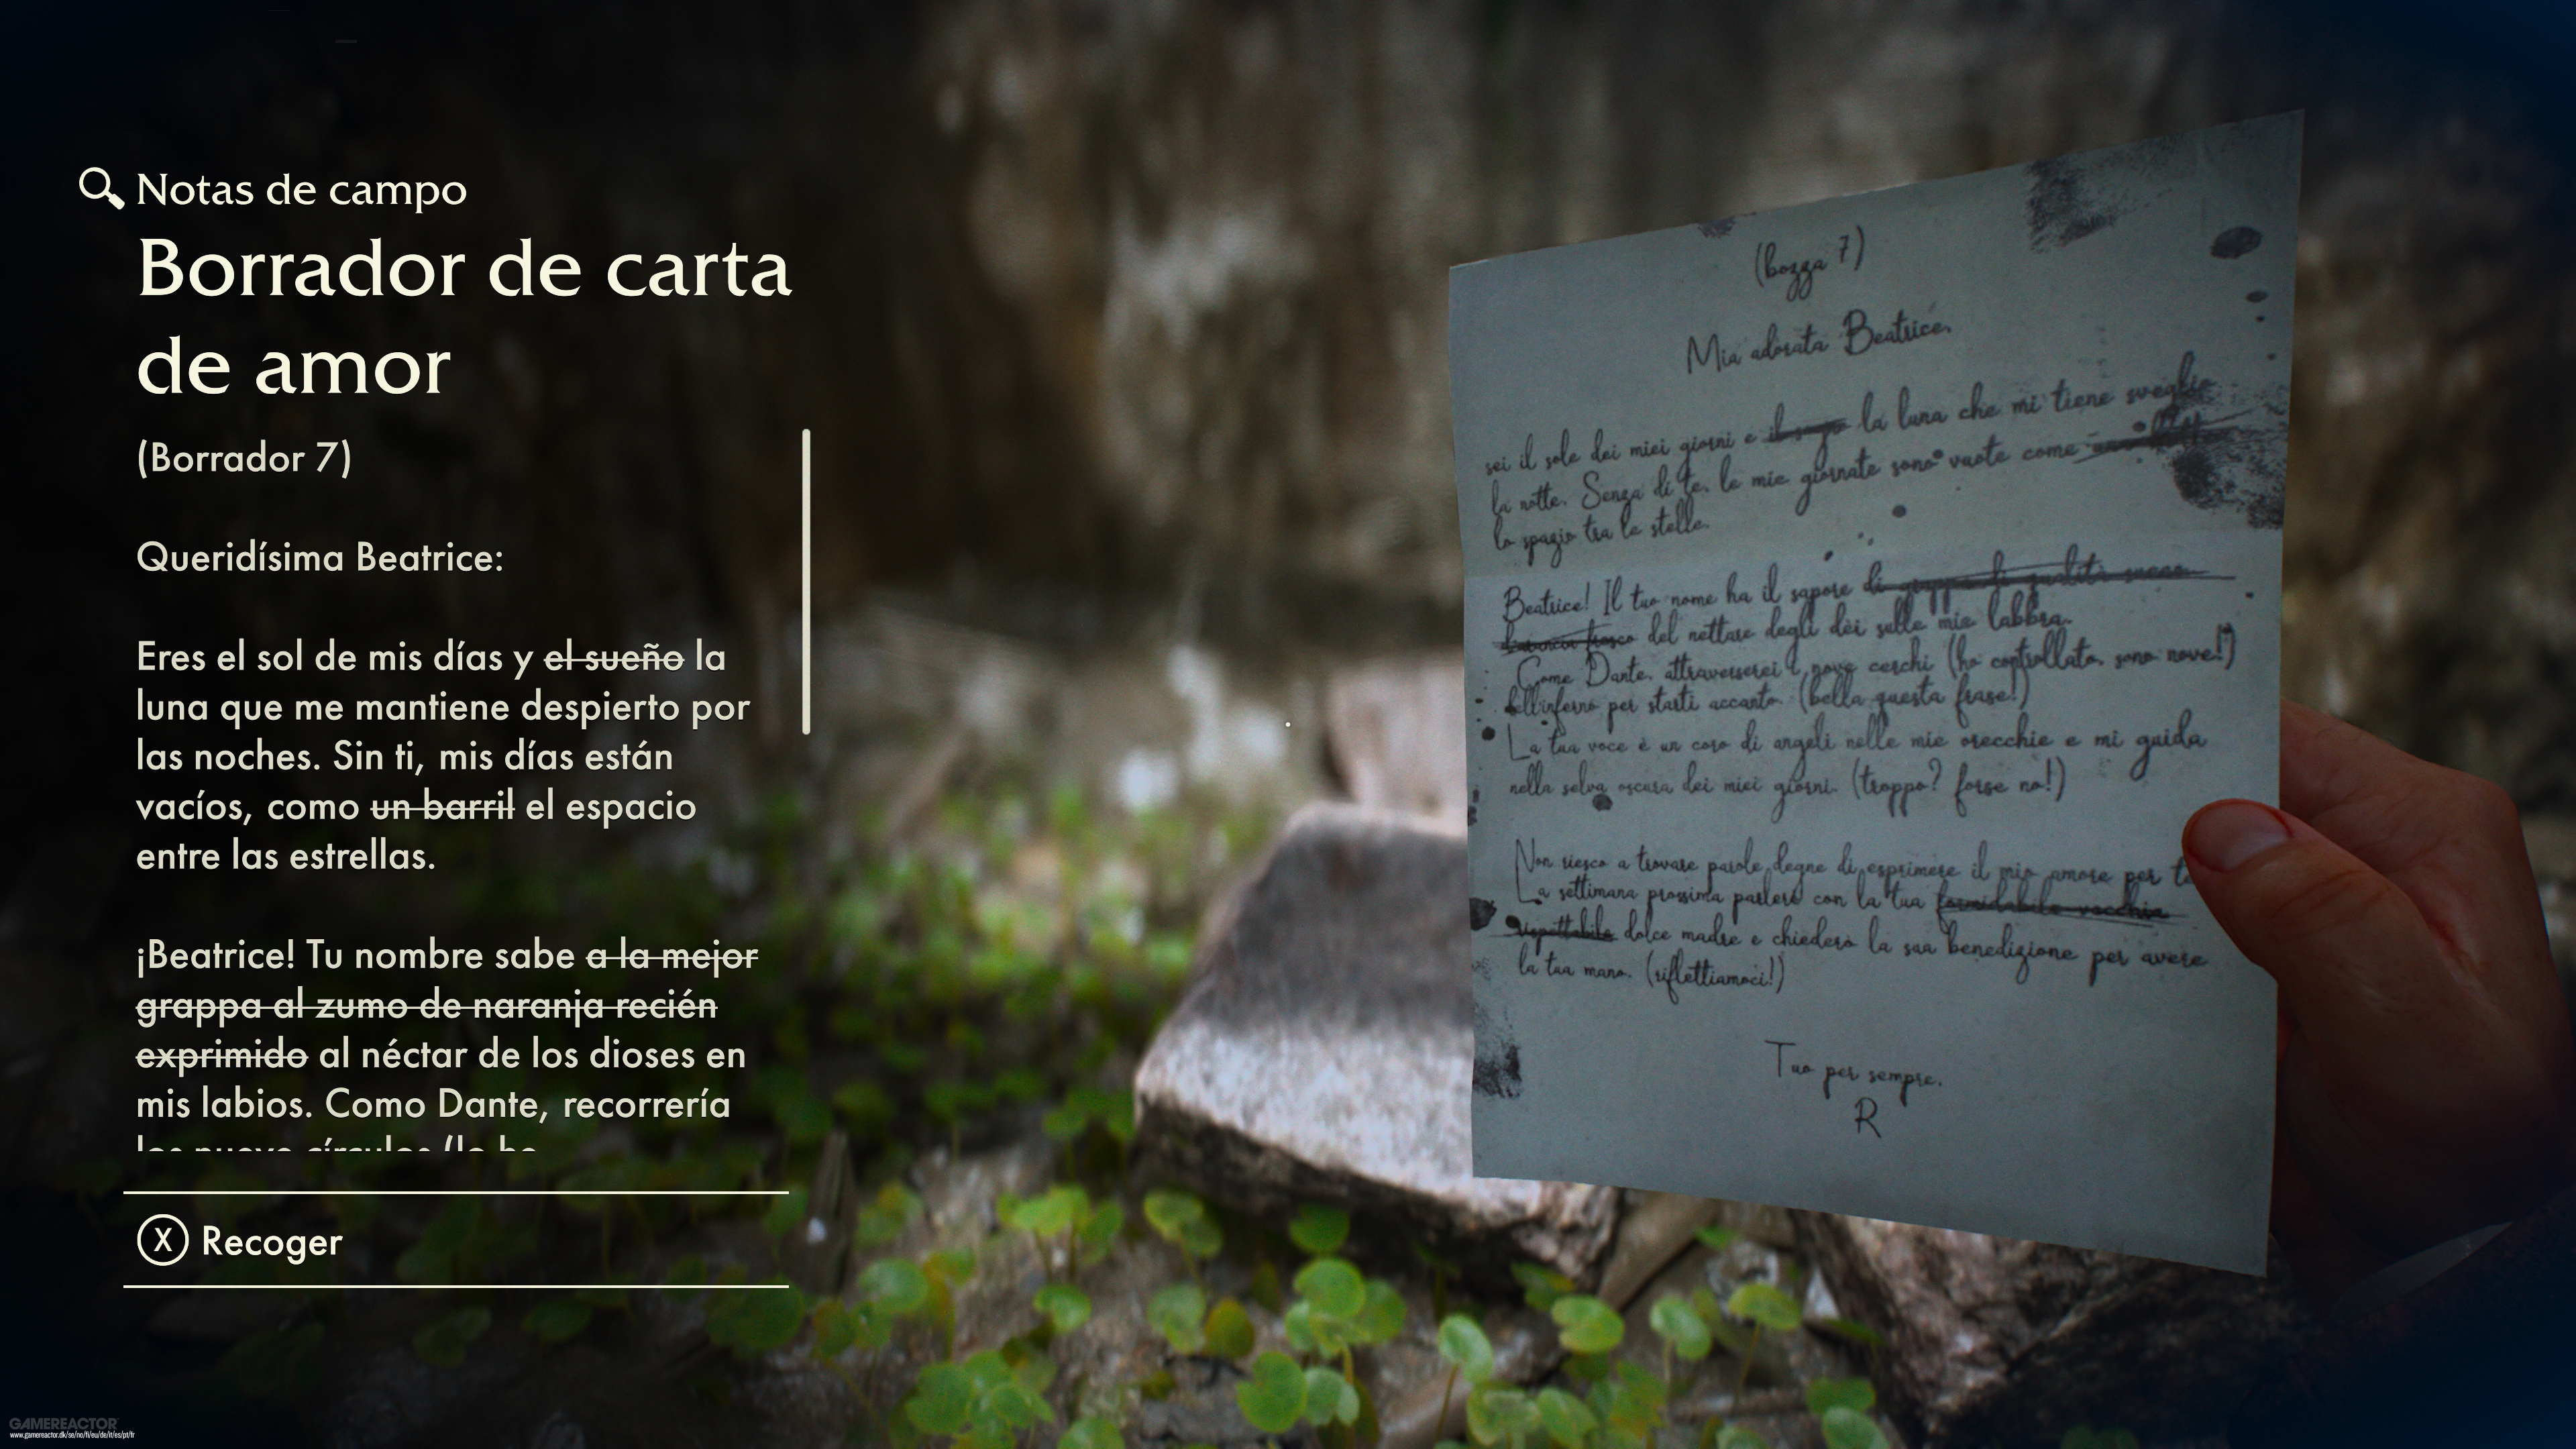 Notas de campo
Borrador de carta
de amor
(Borrador 7)
Queridísima Beatrice:
Eres el sol de mis días y el sueño la
luna que me mantiene despierto por
las noches. Sin ti, mis días están
vacíos, como un barril el espacio
entre las estrellas.
¡Beatrice! Tu nombre sabe a la mejor
grappa al zumo de naranja recién
exprimido al néctar de los dioses en
mis labios. Como Dante, recorrería
los nueve círculos (lo he
X Recoger
(bozza 7)
Mia adorata Beatrice,
sei il sole dei miei giorni e il sogno la luna che mi tiene sveglio
la notte. Senza di te, le mie giornate sono vuote come
lo spazio tra le stelle.
Beatrice! Il tuo nome ha il sapore di grappa di qualità succo
d'arancia fresco del nettare degli dèi sulle mie labbra.
Come Dante, attraverserei i nove cerchi (ho controllato, sono nove!)
dell'inferno per starti accanto. (bella questa frase!)
La tua voce è un coro di angeli nelle mie orecchie e mi guida
nella selva oscura dei miei giorni. (troppo? forse no!)
Non riesco a trovare parole degne di esprimere il mio amore per te
La settimana prossima parlerò con la tua formidabile vecchia
rispettabile dolce madre e chiederò la sua benedizione per avere
la tua mano. (riflettiamoci!)
Tuo per sempre,
R
GAMEREACTOR
www.gamereactor.dk/se/no/fi/eu/de/it/es/pt/fr